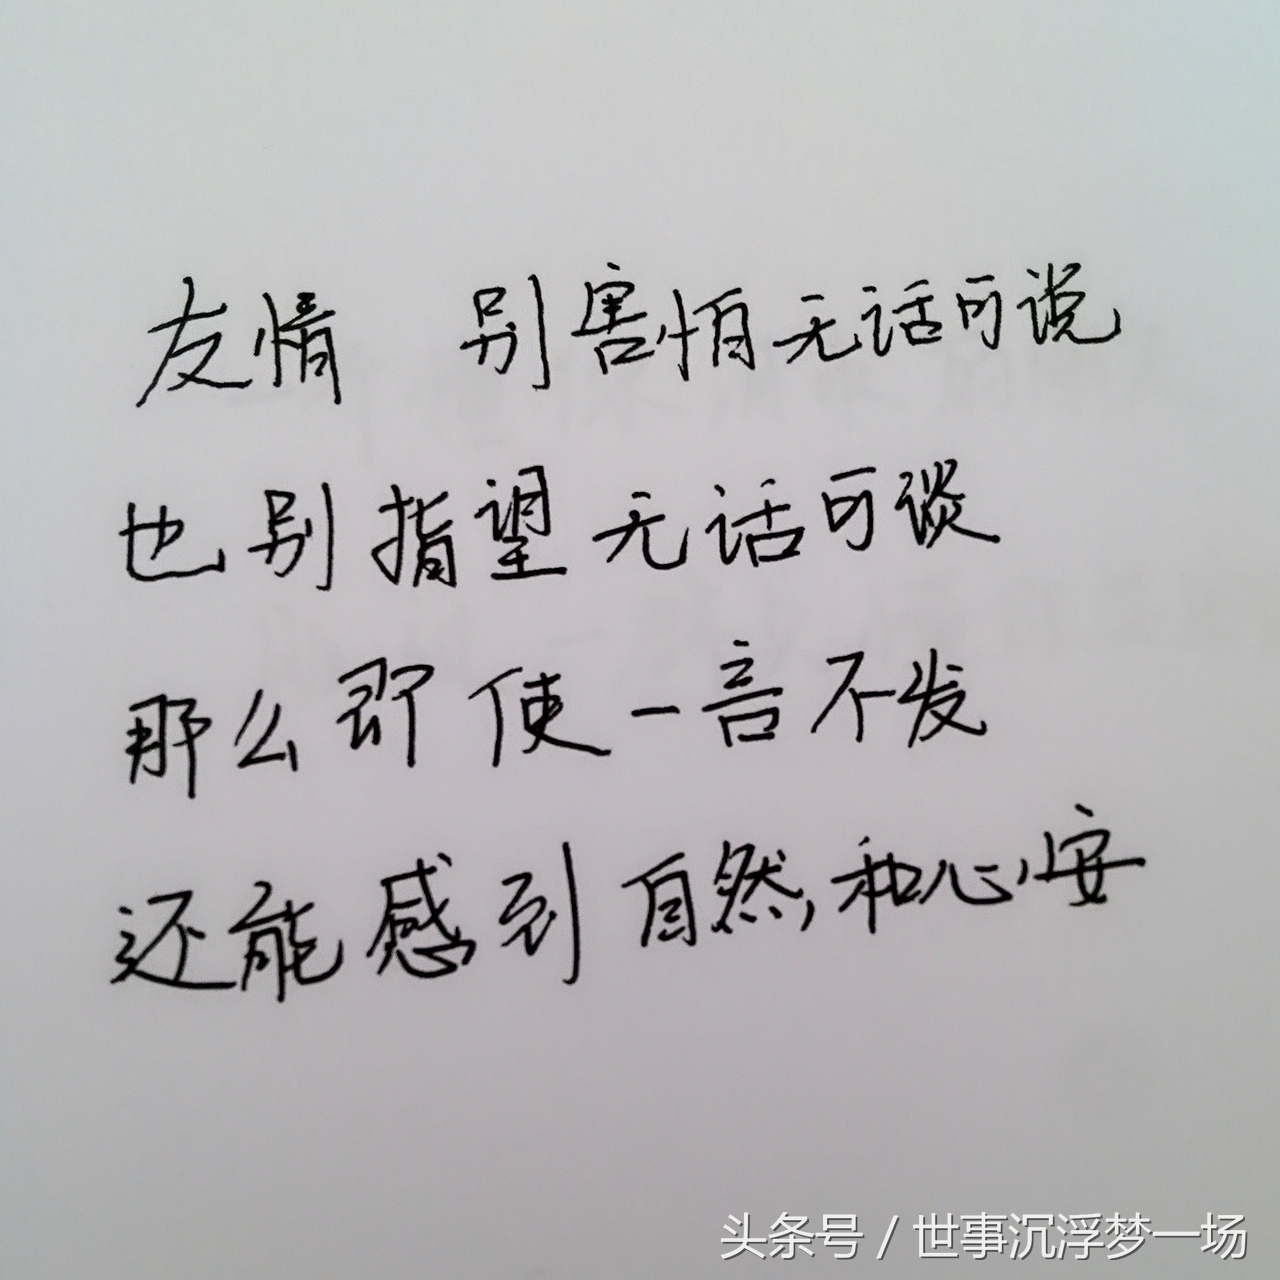 友情 别害怕无话可说
也别指望无话可谈
那么即使一言不发
还能感到自然,和心安
头条号 / 世事沉浮梦一场